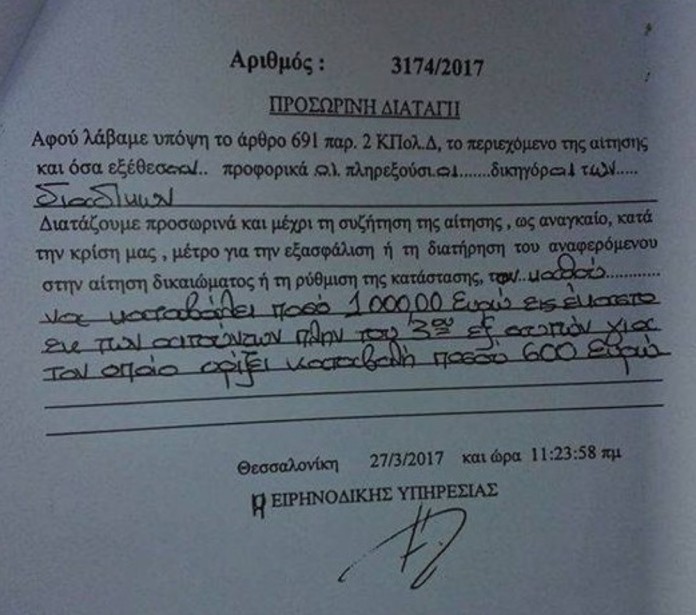 Αριθμός : 3174/2017
ΠΡΟΣΩΡΙΝΗ ΔΙΑΤΑΓΗ
Αφού λάβαμε υπόψη το άρθρο 691 παρ. 2 ΚΠολ.Δ, το περιεχόμενο της αίτησης
και όσα εξέθεσαν.. προφορικά .οι. πληρεξούσι.οι.......δικηγόροι των.....
διαδίκων
Διατάζουμε προσωρινά και μέχρι τη συζήτηση της αίτησης , ως αναγκαίο, κατά
την κρίση μας , μέτρο για την εξασφάλιση ή τη διατήρηση του αναφερόμενου
στην αίτηση δικαιώματος ή τη ρύθμιση της κατάστασης, του..καθού............
να καταβάλει ποσό 1000,00 Ευρώ εις έκαστο
εκ των αιτούντων πλην του 3ου εξ αυτών για
τον οποίο ορίζει καταβολή ποσού 600 Ευρώ
Θεσσαλονίκη 27/3/2017 και ώρα 11:23:58 πμ
Η ΕΙΡΗΝΟΔΙΚΗΣ ΥΠΗΡΕΣΙΑΣ